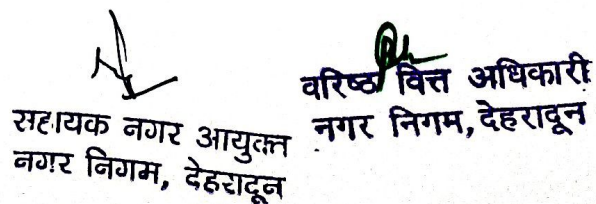 सहायक नगर आयुक्त
नगर निगम, देहरादून
वरिष्ठ वित्त अधिकारी
नगर निगम, देहरादून